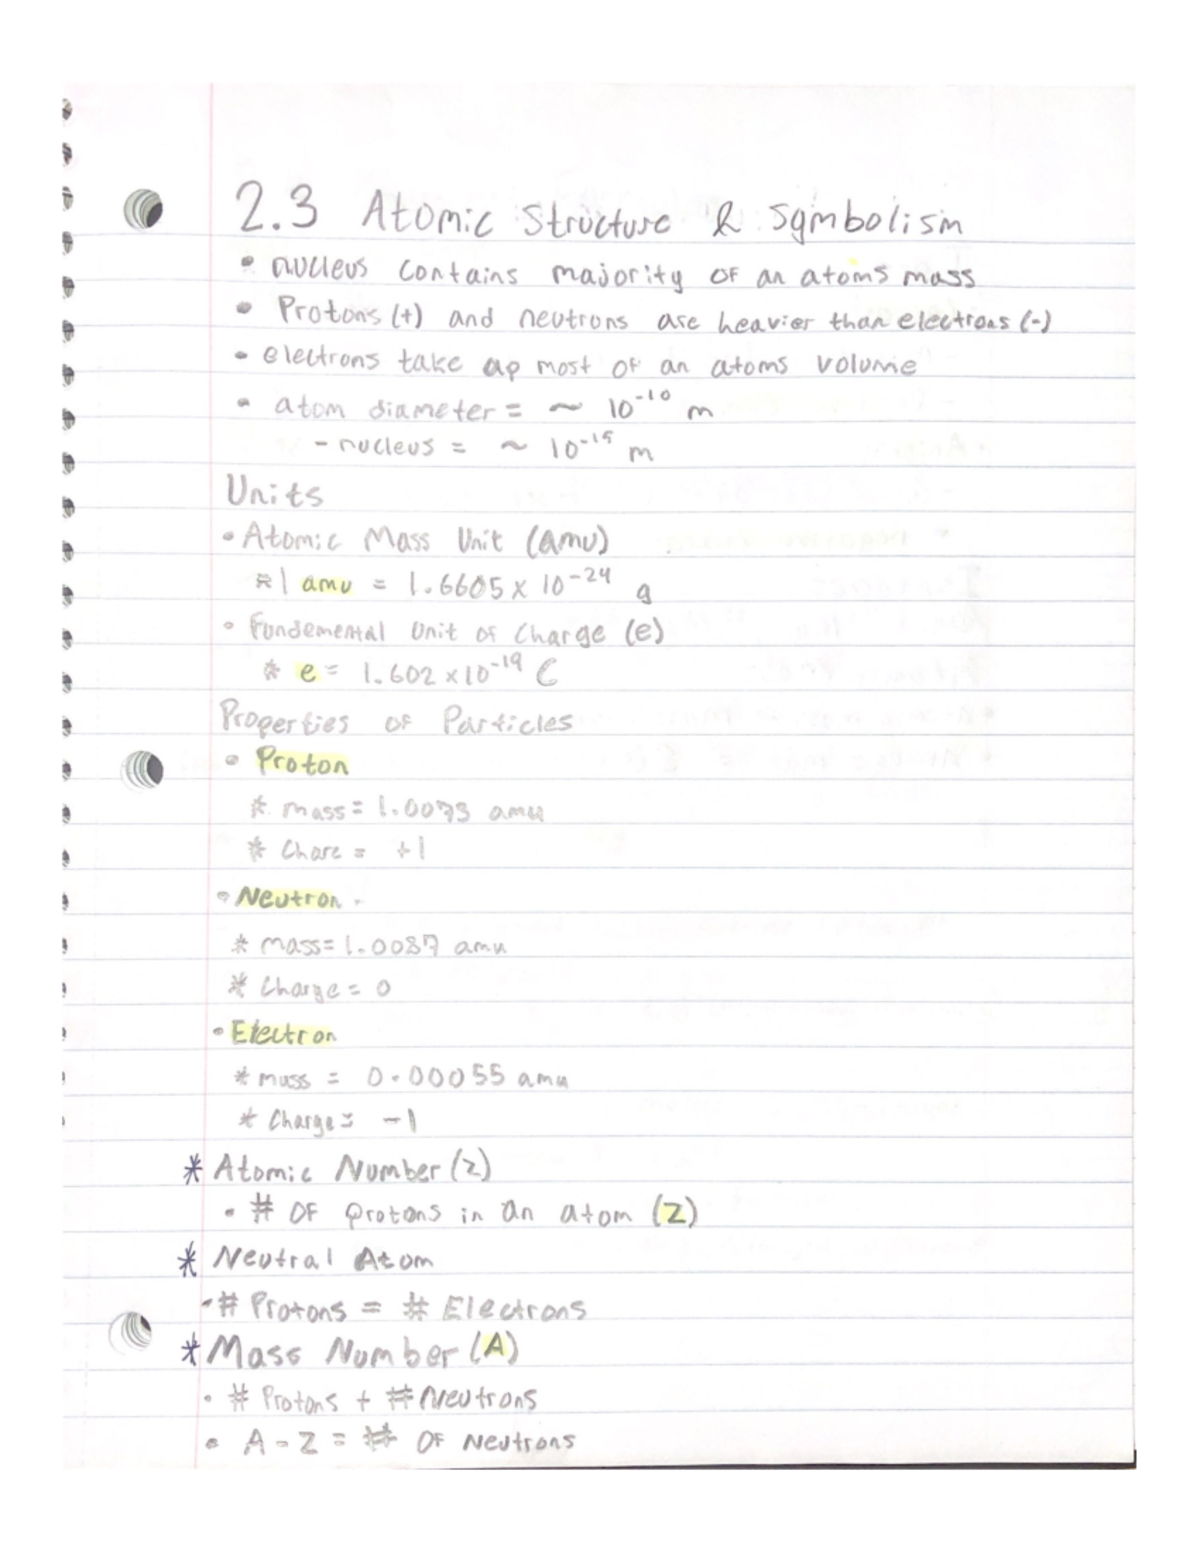 2.3 Atomic Structure & Symbolism
• nucleus contains majority of an atoms mass
• Protons (+) and neutrons are heavier than electrons (-)
• electrons take up most of an atoms volume
• atom diameter = ~ 10⁻¹⁰ m
- nucleus = ~ 10⁻¹⁵ m
Units
• Atomic Mass Unit (amu)
* 1 amu = 1.6605 x 10⁻²⁴ g
• Fundemental Unit of Charge (e)
* e = 1.602 x 10⁻¹⁹ C
Properties of Particles
• Proton
* mass = 1.0073 amu
* Chare = +1
• Neutron
* mass = 1.0087 amu
* Charge = 0
• Electron
* mass = 0.00055 amu
* Charge = -1
* Atomic Number (z)
• # OF protons in an atom (Z)
* Neutral Atom
• # Protons = # Electrons
* Mass Number (A)
• # Protons + # Neutrons
• A - Z = # OF Neutrons